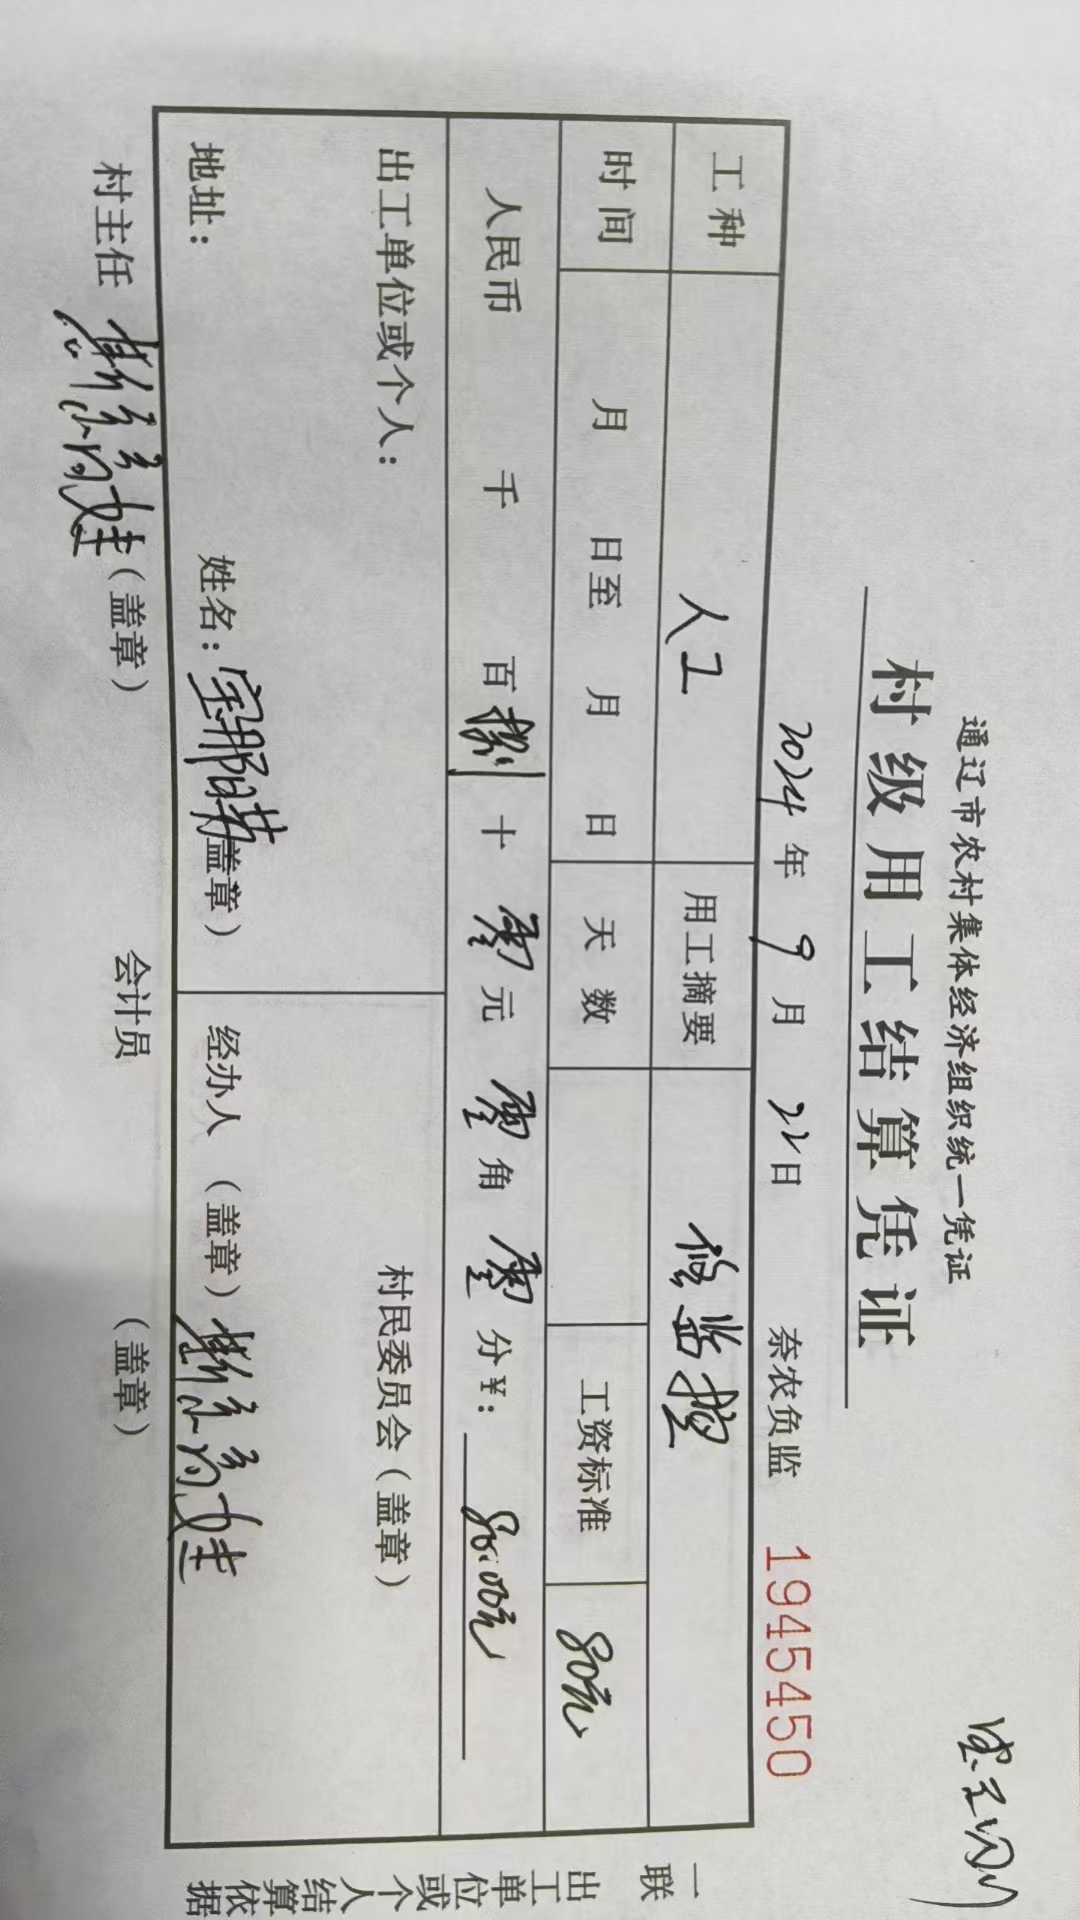 通辽市农村集体经济组织统一凭证
村级用工结算凭证
2024年9月22日 奈农负监 1945450
工种 人工 用工摘要 修监控
时间 月 日至 月 日 天数 工资标准 80元
人民币 千 百捌十零元零角零分¥：80.00元
出工单位或个人： 村民委员会（盖章）
地址： 姓名：（盖章） 经办人（盖章）
村主任（盖章） 会计员（盖章）
一联 出工单位或个人结算依据